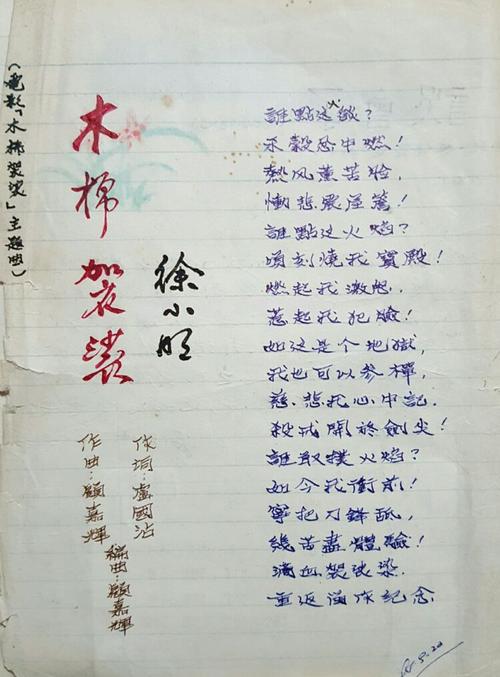 (電影「木棉袈裟」主題曲)
木棉袈裟
徐小明
作詞:盧國沾
作曲:顧嘉輝
編曲:顧嘉輝
誰點這火燄?
忿中燃!
熱风薰苦臉,
慟悲震屋簷!
誰點這火焰?
頃刻燒我寶殿!
燃起我激怒,
惹起我犯險!
如這是个地獄,
我也可以参禪,
慈悲我心中記,
殺戒開於劍尖!
誰敢撲火焰?
如今我衝前!
寧把刀鋒舐,
幾苦盡體驗!
滴血袈裟染
重返留作紀念